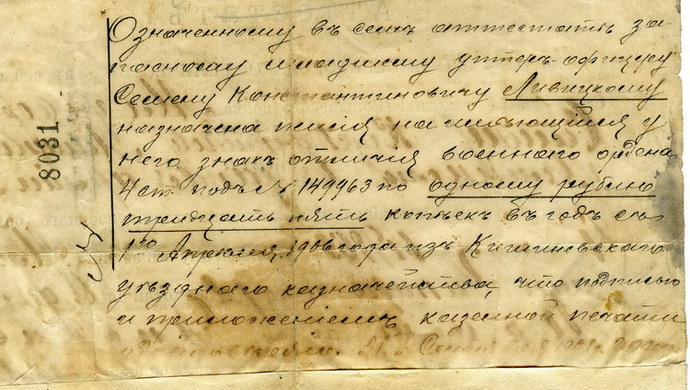 Означенному въ семъ аттестатѣ за-
пасному младшему унтеръ-офицеру
Семену Константиновичу Ливицкому
назначена пенсія на имѣющійся у
него знакъ отличія военного ордена
4 ст. подъ № 149963 по одному рублю
тридцать пять копѣекъ въ годъ съ
1го Апрѣля 1906 года изъ Кишиневскаго
уѣзднаго казначейства, что подписью
и приложеніемъ казенной печати
8031